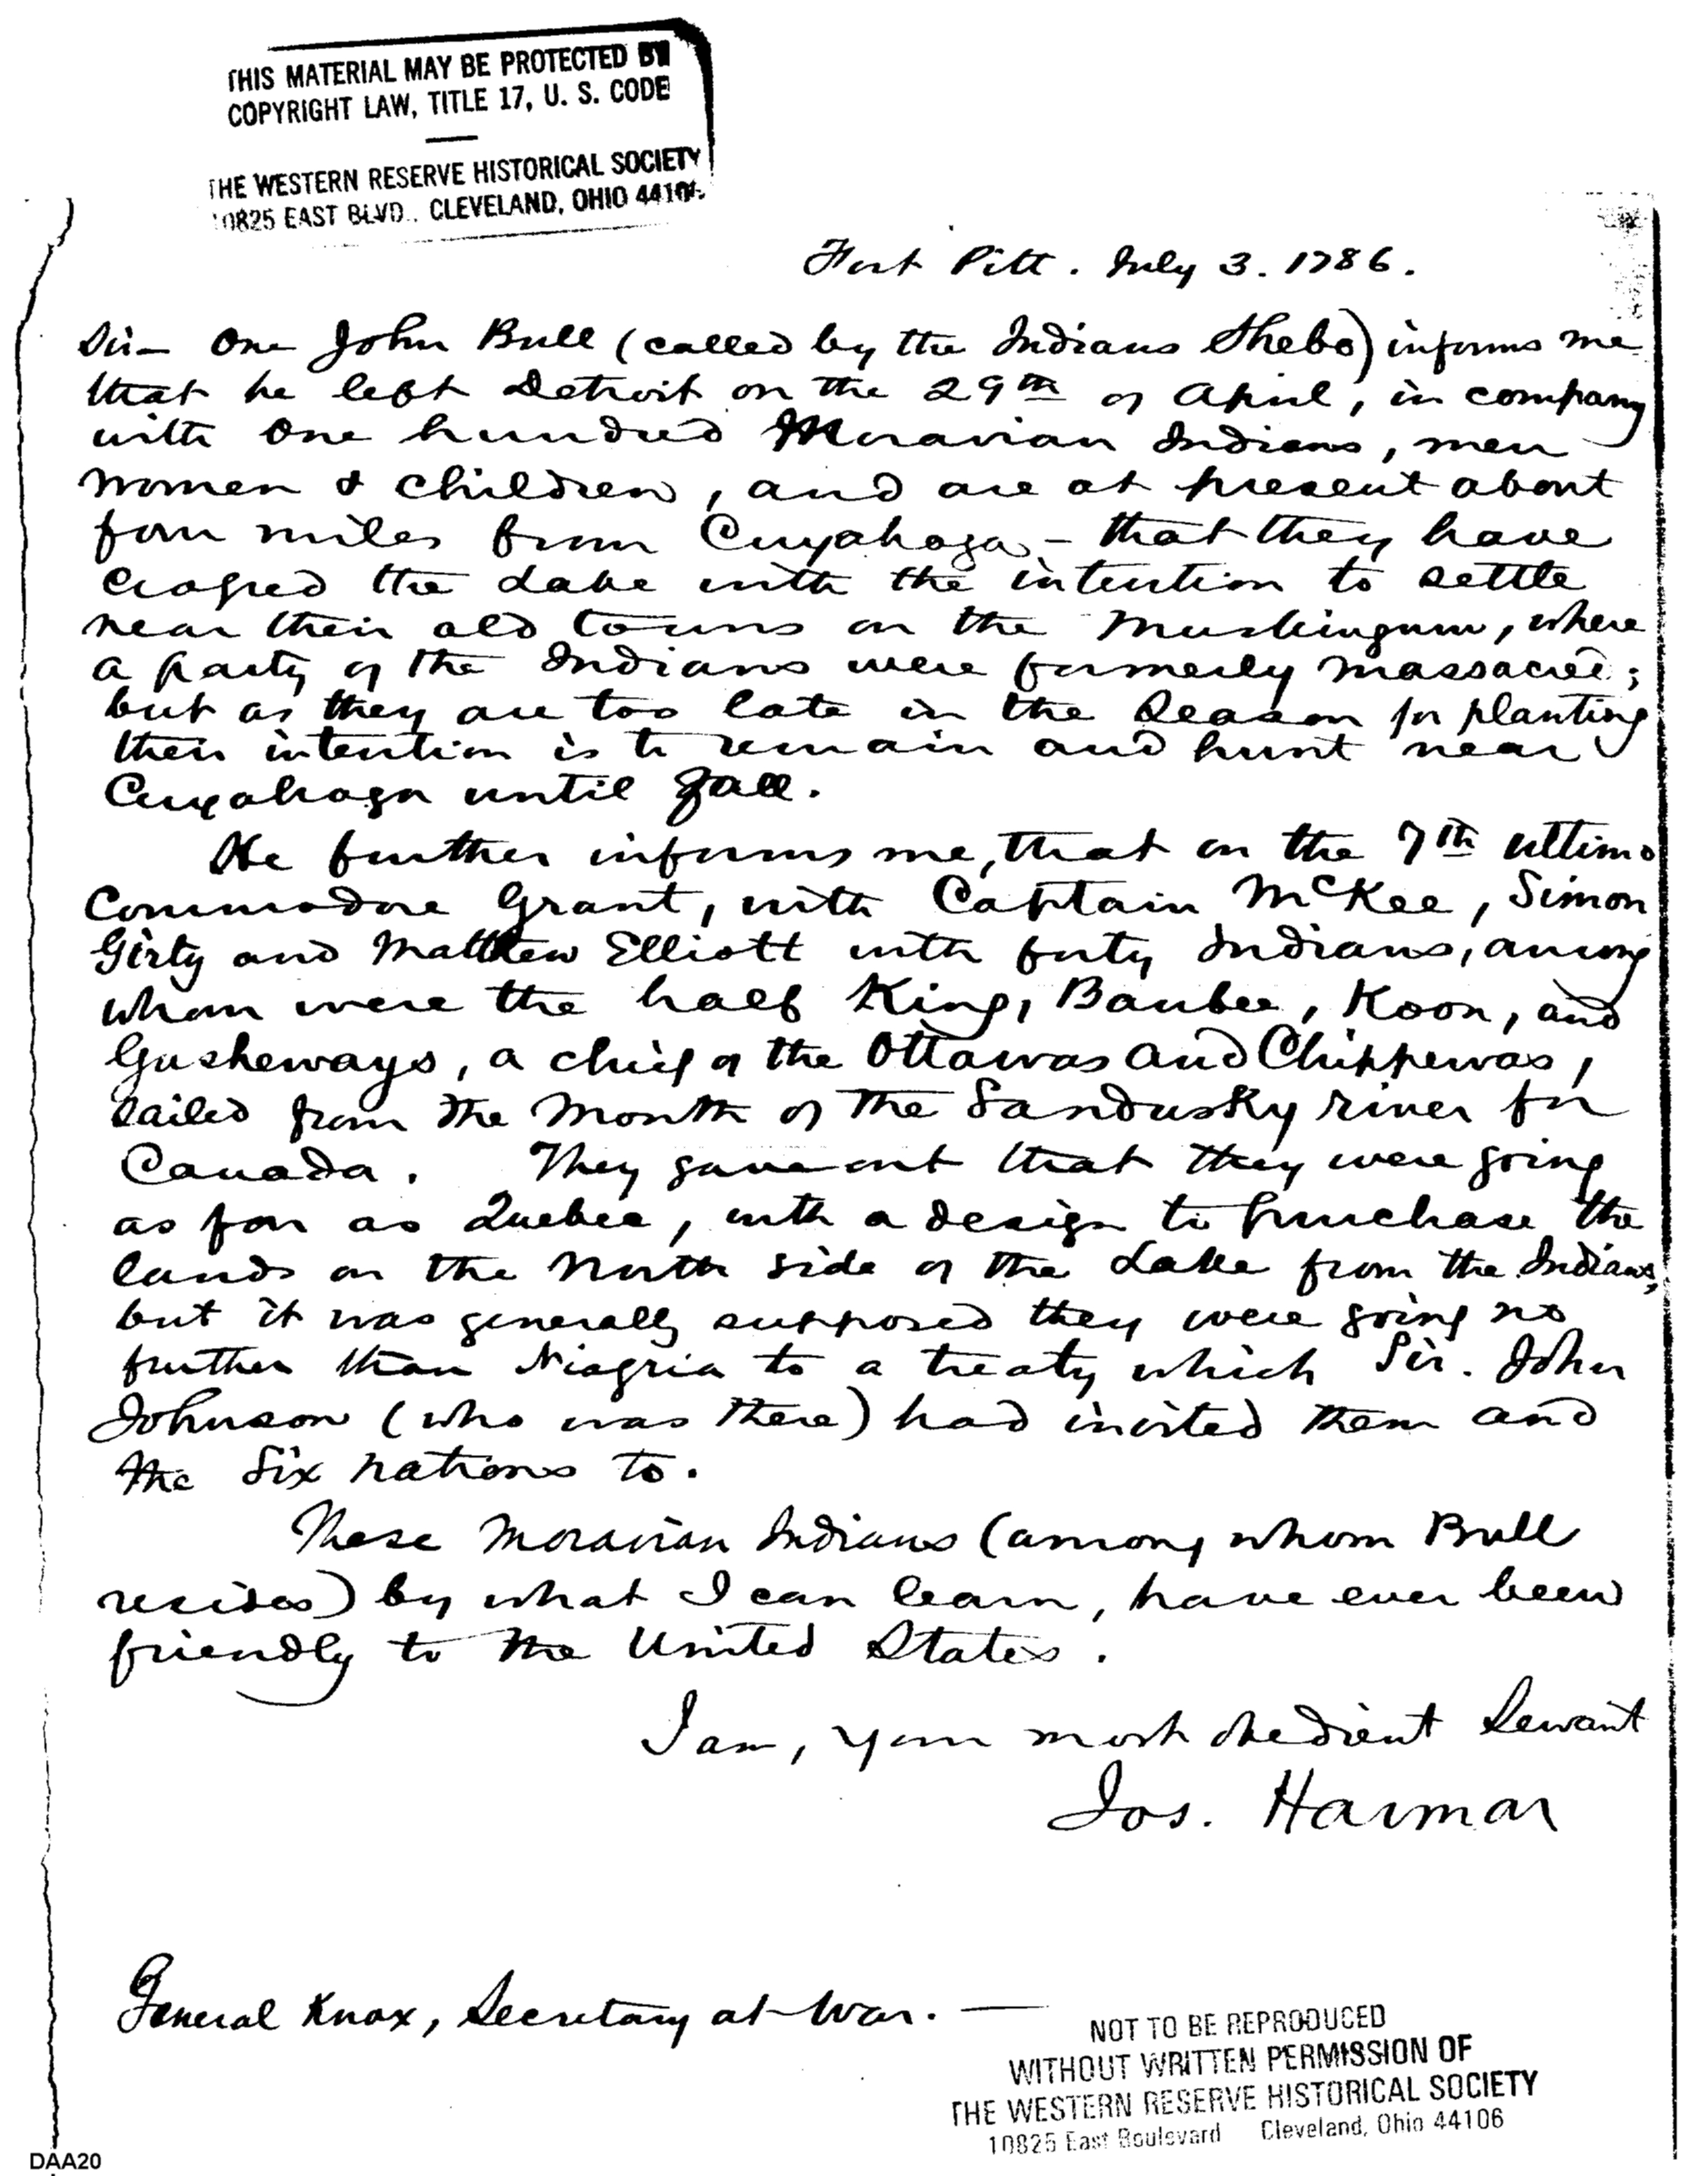 THIS MATERIAL MAY BE PROTECTED BY
COPYRIGHT LAW, TITLE 17, U. S. CODE
THE WESTERN RESERVE HISTORICAL SOCIETY
10825 EAST BLVD., CLEVELAND, OHIO 44106
Fort Pitt. July 3. 1786.
Sir— One John Bull (called by the Indians Shebo) informs me
that he left Detroit on the 29th of April, in company
with one hundred Moravian Indians, men
women & children, and are at present about
four miles from Cuyahoga — that they have
crossed the Lake with the intention to settle
near their old towns on the Muskingum, where
a party of the Indians were formerly massacred;
but as they are too late in the season for planting
their intention is to remain and hunt near
Cuyahoga until fall.
He further informs me, that on the 7th ultimo
Commodore Grant, with Captain McKee, Simon
Girty and Matthew Elliott with forty Indians, among
whom were the half King, Baubee, Koon, and
Gusheways, a chief of the Ottawas and Chippewas,
sailed from the mouth of the Sandusky river for
Canada. They gave out that they were going
as far as Quebec, with a design to purchase the
lands on the north side of the Lake from the Indians,
but it was generally supposed they were going no
further than Niagria to a treaty which Sir. John
Johnson (who was there) had invited them and
the Six nations to.
These Moravian Indians (among whom Bull
resides) by what I can learn, have ever been
friendly to the United States.
I am, your most obedient Servant
Jos. Harmar
General Knox, Secretary at War. —
NOT TO BE REPRODUCED
WITHOUT WRITTEN PERMISSION OF
THE WESTERN RESERVE HISTORICAL SOCIETY
10825 East Boulevard Cleveland, Ohio 44106
DAA20